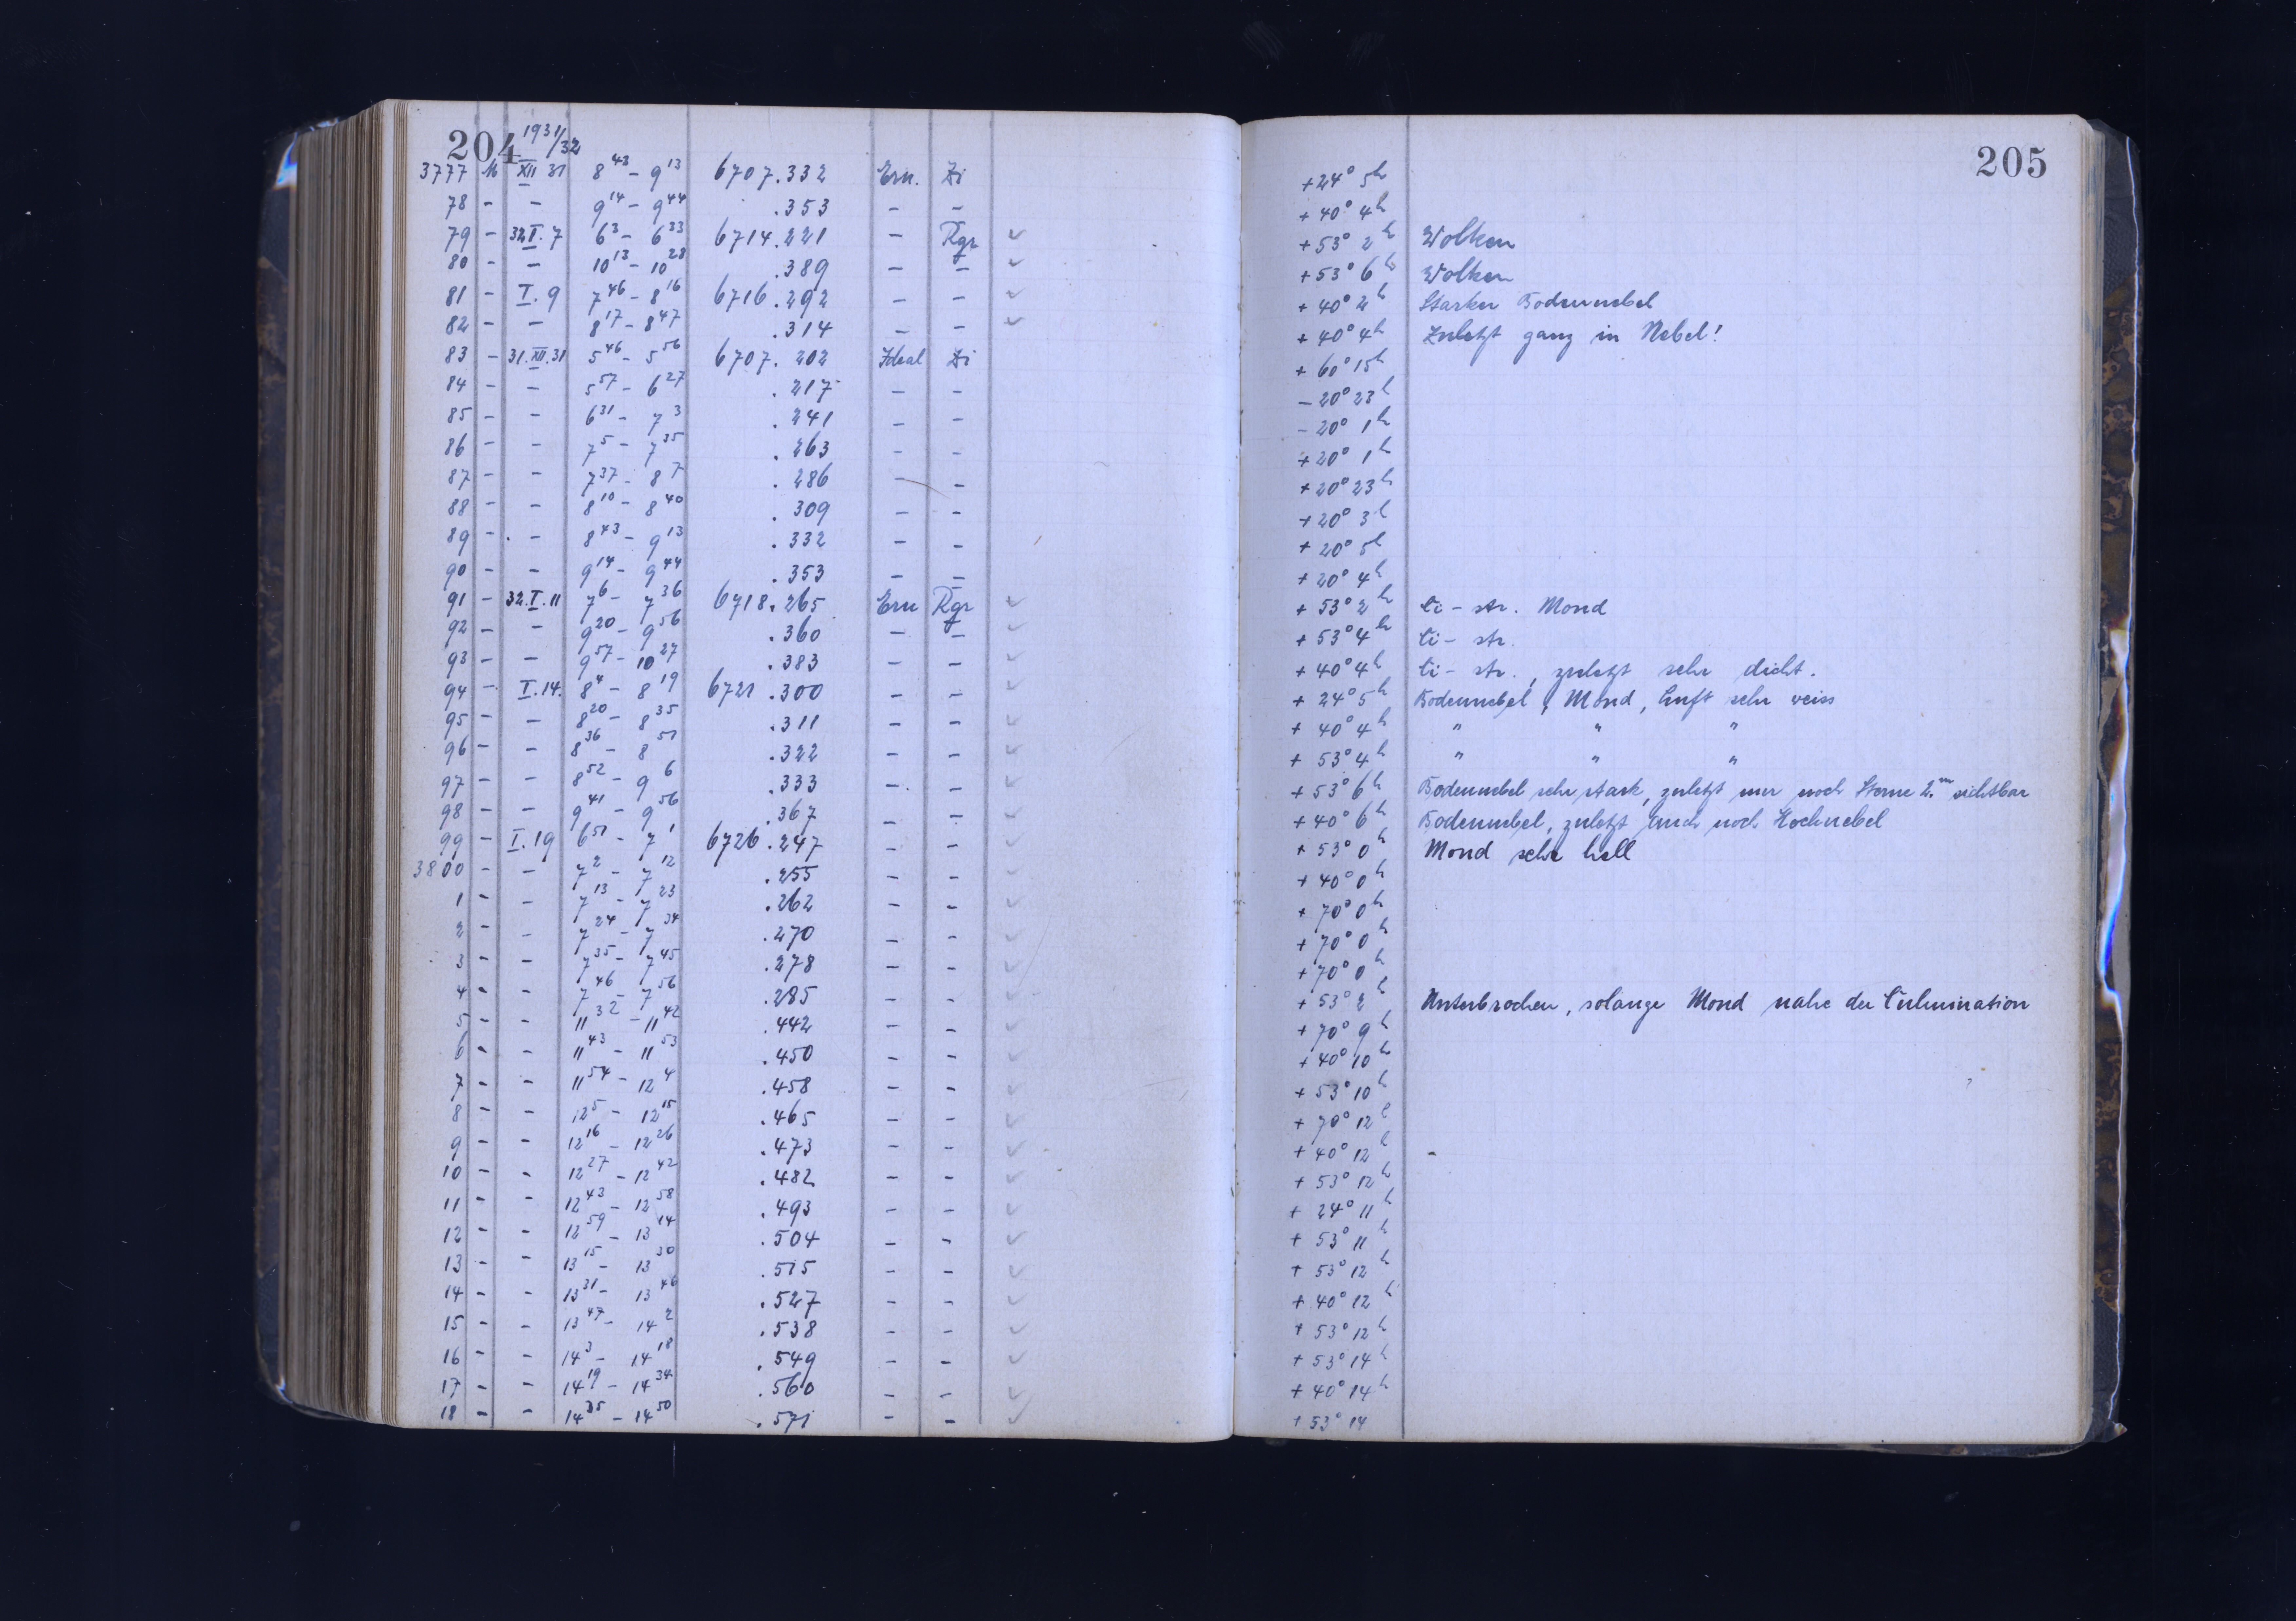 204 1931/32 205
3777 M XII 31 8 43 - 9 13 6707.332 Ern. Zi +24° 5h
78 - - 9 14 - 9 44 .353 - - +40° 4h
79 - 32 I. 7 6 3 - 6 33 6714.221 - Rgr ✓ +53° 2h Wolken
80 - - 10 13 - 10 28 .389 - - ✓ +53° 6h Wolken
81 - I. 9 7 46 - 8 16 6716.292 - - ✓ +40° 2h Starker Bodennebel
82 - - 8 17 - 8 47 .314 - - ✓ +40° 4h Zuletzt ganz in Nebel!
83 - 31.XII.31 5 46 - 5 56 6707.202 Ideal Zi +60° 15h
84 - - 5 57 - 6 27 .217 - - -20° 23h
85 - - 6 31 - 7 3 .241 - - -20° 1h
86 - - 7 5 - 7 35 .263 - - +20° 1h
87 - - 7 37 - 8 7 .286 - - +20° 23h
88 - - 8 10 - 8 40 .309 - - +20° 3h
89 - - 8 43 - 9 13 .332 - - +20° 5h
90 - - 9 14 - 9 44 .353 - - +20° 4h
91 - 32.I.11 7 6 - 7 36 6718.265 Ern Rgr ✓ +53° 2h Ci-str. Mond
92 - - 9 20 - 9 56 .360 - - ✓ +53° 4h Ci-str.
93 - - 9 57 - 10 27 .383 - - ✓ +40° 4h Ci-str., zuletzt sehr dicht.
94 - I.14. 8 4 - 8 19 6721.300 - - ✓ +24° 5h Bodennebel, Mond, Luft sehr weiss
95 - - 8 20 - 8 35 .311 - - ✓ +40° 4h " " "
96 - - 8 36 - 8 51 .322 - - ✓ +53° 4h " " "
97 - - 8 52 - 9 6 .333 - - ✓ +53° 6h Bodennebel sehr stark, zuletzt nur noch Sterne 2.m sichtbar
98 - - 9 41 - 9 56 .367 - - ✓ +40° 6h Bodennebel, zuletzt auch noch Hochnebel
99 - I.19 6 51 - 7 1 6726.247 - - ✓ +53° 0h Mond sehr hell
3800 - - 7 2 - 7 12 .255 - - ✓ +40° 0h
1 - - 7 13 - 7 23 .262 - - ✓ +70° 0h
2 - - 7 24 - 7 34 .270 - - ✓ +70° 0h
3 - - 7 35 - 7 45 .278 - - ✓ +70° 0h
4 - - 7 46 - 7 56 .285 - - ✓ +53° 2h Unterbrochen, solange Mond nahe der Culmination
5 - - 11 32 - 11 42 .442 - - ✓ +70° 9h
6 - - 11 43 - 11 53 .450 - - ✓ +40° 10h
7 - - 11 54 - 12 4 .458 - - ✓ +53° 10h
8 - - 12 5 - 12 15 .465 - - ✓ +70° 12h
9 - - 12 16 - 12 26 .473 - - ✓ +40° 12h
10 - - 12 27 - 12 42 .482 - - ✓ +53° 12h
11 - - 12 43 - 12 58 .493 - - ✓ +24° 11h
12 - - 12 59 - 13 14 .504 - - ✓ +53° 11h
13 - - 13 15 - 13 30 .515 - - ✓ +53° 12h
14 - - 13 31 - 13 46 .527 - - ✓ +40° 12h
15 - - 13 47 - 14 2 .538 - - ✓ +53° 12h
16 - - 14 3 - 14 18 .549 - - ✓ +53° 14h
17 - - 14 19 - 14 34 .560 - - ✓ +40° 14h
18 - - 14 35 - 14 50 .571 - - ✓ +53° 14